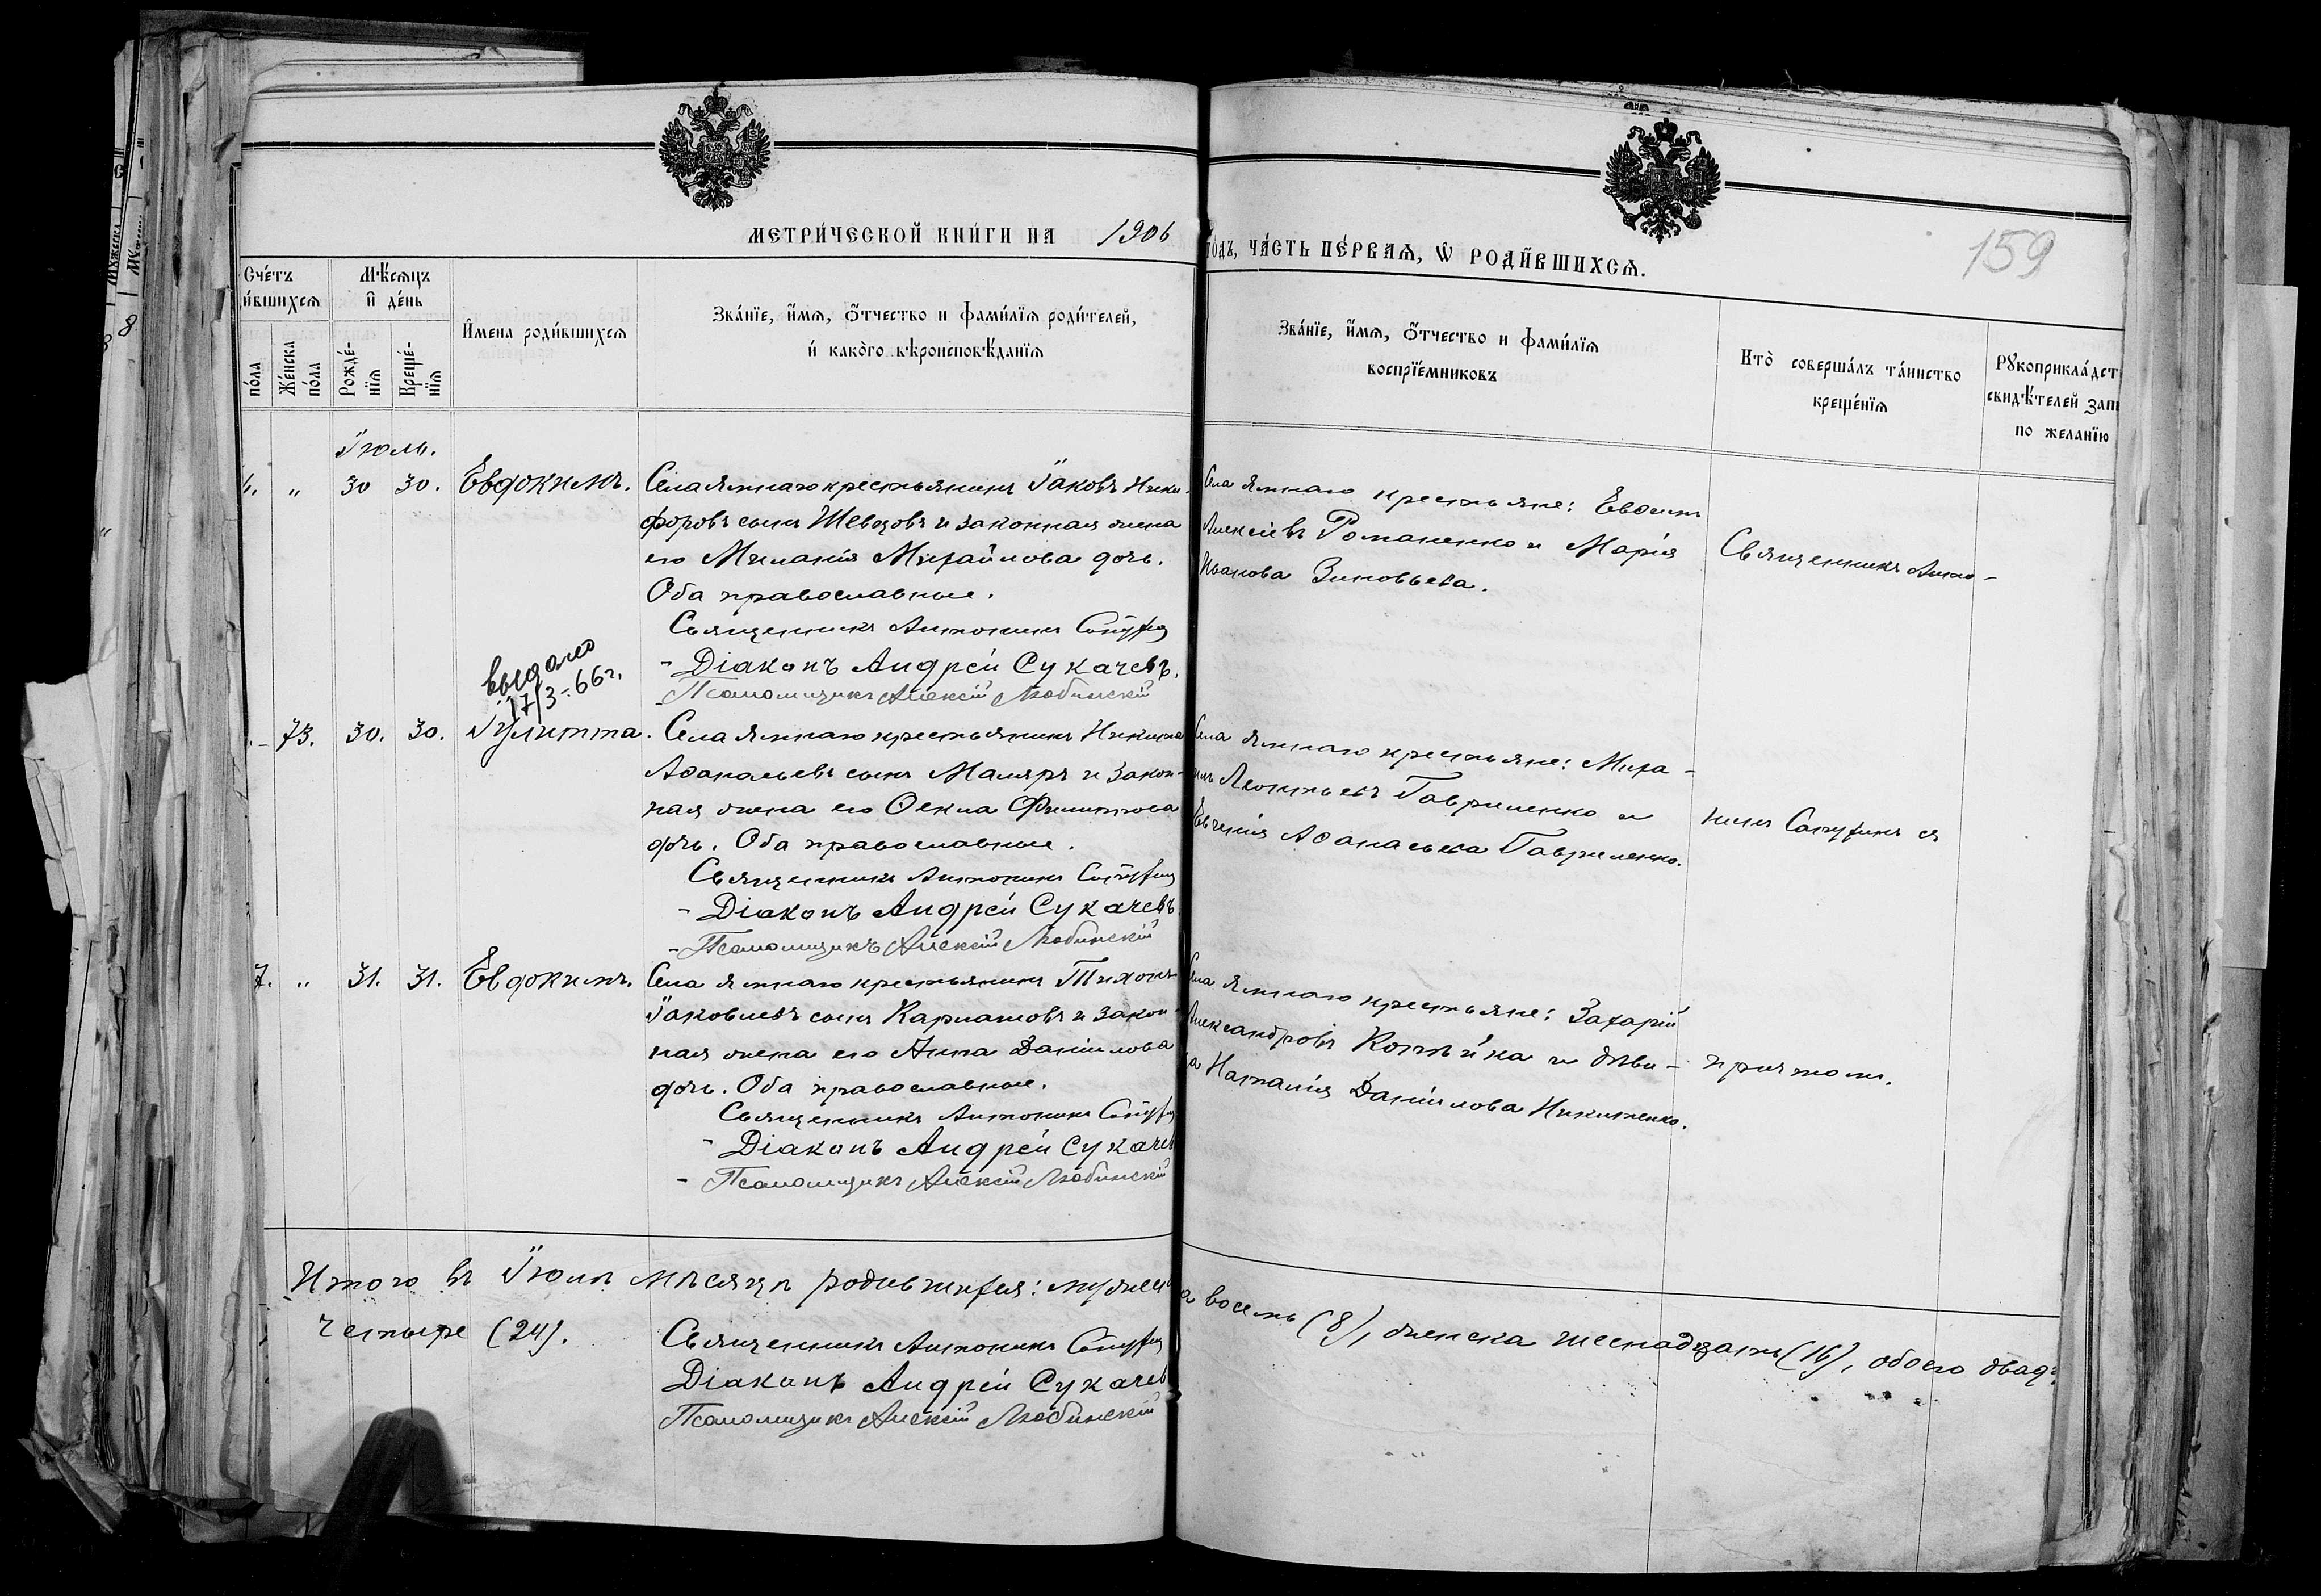 МЕТРИ́ЧЕСКОЙ КНИ́ГИ НА 1906
ГО́ДЪ, ЧА́СТЬ ПЕ́РВАѦ, Ѡ РОДИ́ВШИХСѦ.
159
Сче́тъ
и́вшихсѧ
Мѣ́сѧцъ
и де́нь
по́ла
Же́нска
по́ла
Рожде́-
нїѧ
Креще́-
нїѧ
И́мена роди́вшихсѧ
Зва́нїе, и́мѧ, о́тчество и фами́лїѧ роди́телей,
и како́го вѣроисповѣ́данїѧ
Зва́нїе, и́мѧ, о́тчество и фами́лїѧ
воспрїе́мниковъ
Кто̀ соверша́лъ та́инство
креще́нїѧ
Рꙋкоприкла́дст
свидѣ́телей зап
по жела́нїю
Іюль.
6. „ 30 30. Евдокимъ.
Села Ямнаго крестьянинъ Іаковъ Ники-
форовъ сынъ Шевцовъ и законная жена
его Миланія Михайлова дочь.
Оба православные.
Священникъ Антонинъ
- Діаконъ Андрей Сукачевъ.
- Псаломщикъ Алексій Любинскій
Села Ямнаго крестьяне: Евфим
Алексіевъ Романенко и Марія
Иванова Зиновьева.
Священникъ Анто-
выдано
17/3-66г.
- 73. 30. 30. Іулитта.
Села Ямнаго крестьянинъ Никита
Аѳанасьевъ сынъ Маляръ и закон-
ная жена его Ѳекла Филиппова
дочь. Оба православные.
Священникъ Антонинъ
- Діаконъ Андрей Сукачевъ
- Псаломщикъ Алексій Любинскій
Села Ямнаго крестьяне: Миха-
илъ Леонтьевъ Гавриленко и
Евгенія Аѳанасьева Гавриленко.
нинъ Сапухинъ съ
7. „ 31. 31. Евдокимъ.
Села Ямнаго крестьянинъ Тихонъ
Іаковлевъ сынъ Карпатовъ и закон-
ная жена его Анна Даніилова
дочь. Оба православные.
Священникъ Антонинъ
- Діаконъ Андрей Сукачев
- Псаломщикъ Алексій Любинскій
Села Ямнаго крестьяне: Захарій
Александровъ Копѣйка и дѣви-
ца Наталія Даніилова Никитенко.
причтомъ.
Итого въ Іюлѣ мѣсяцѣ родившихся: мужеск
а восемь (8), женска шеснадцать (16), обоего двад-
четыре (24).
Священникъ Антонинъ
Діаконъ Андрей Сукачев
Псаломщикъ Алексій Любинскій